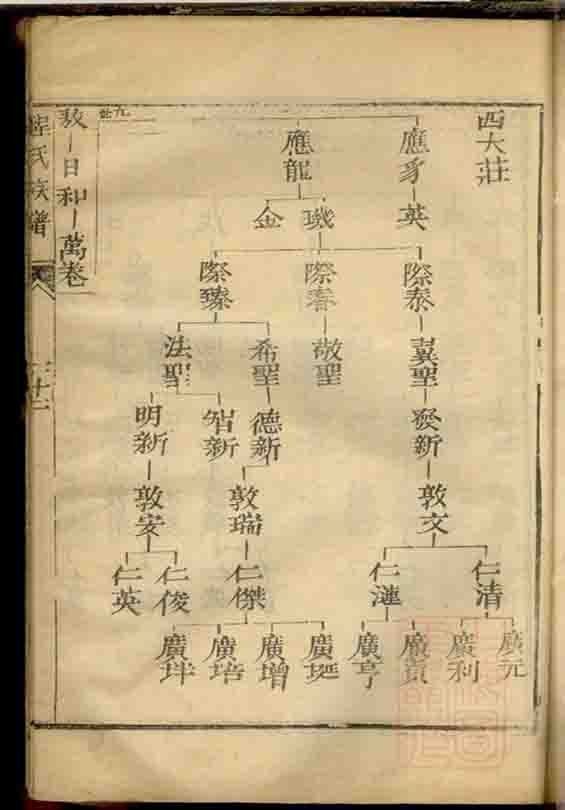 西大莊
應豸
應龍
英
璣
金
際泰
際春
際臻
冀聖
敬聖
希聖
法聖
發新
德新
智新
明新
敦文
敦瑞
敦安
仁清
仁漣
仁傑
仁俊
仁英
廣元
廣利
廣亨
廣埏
廣增
廣培
九世
敦
日和
萬卷
氏族譜